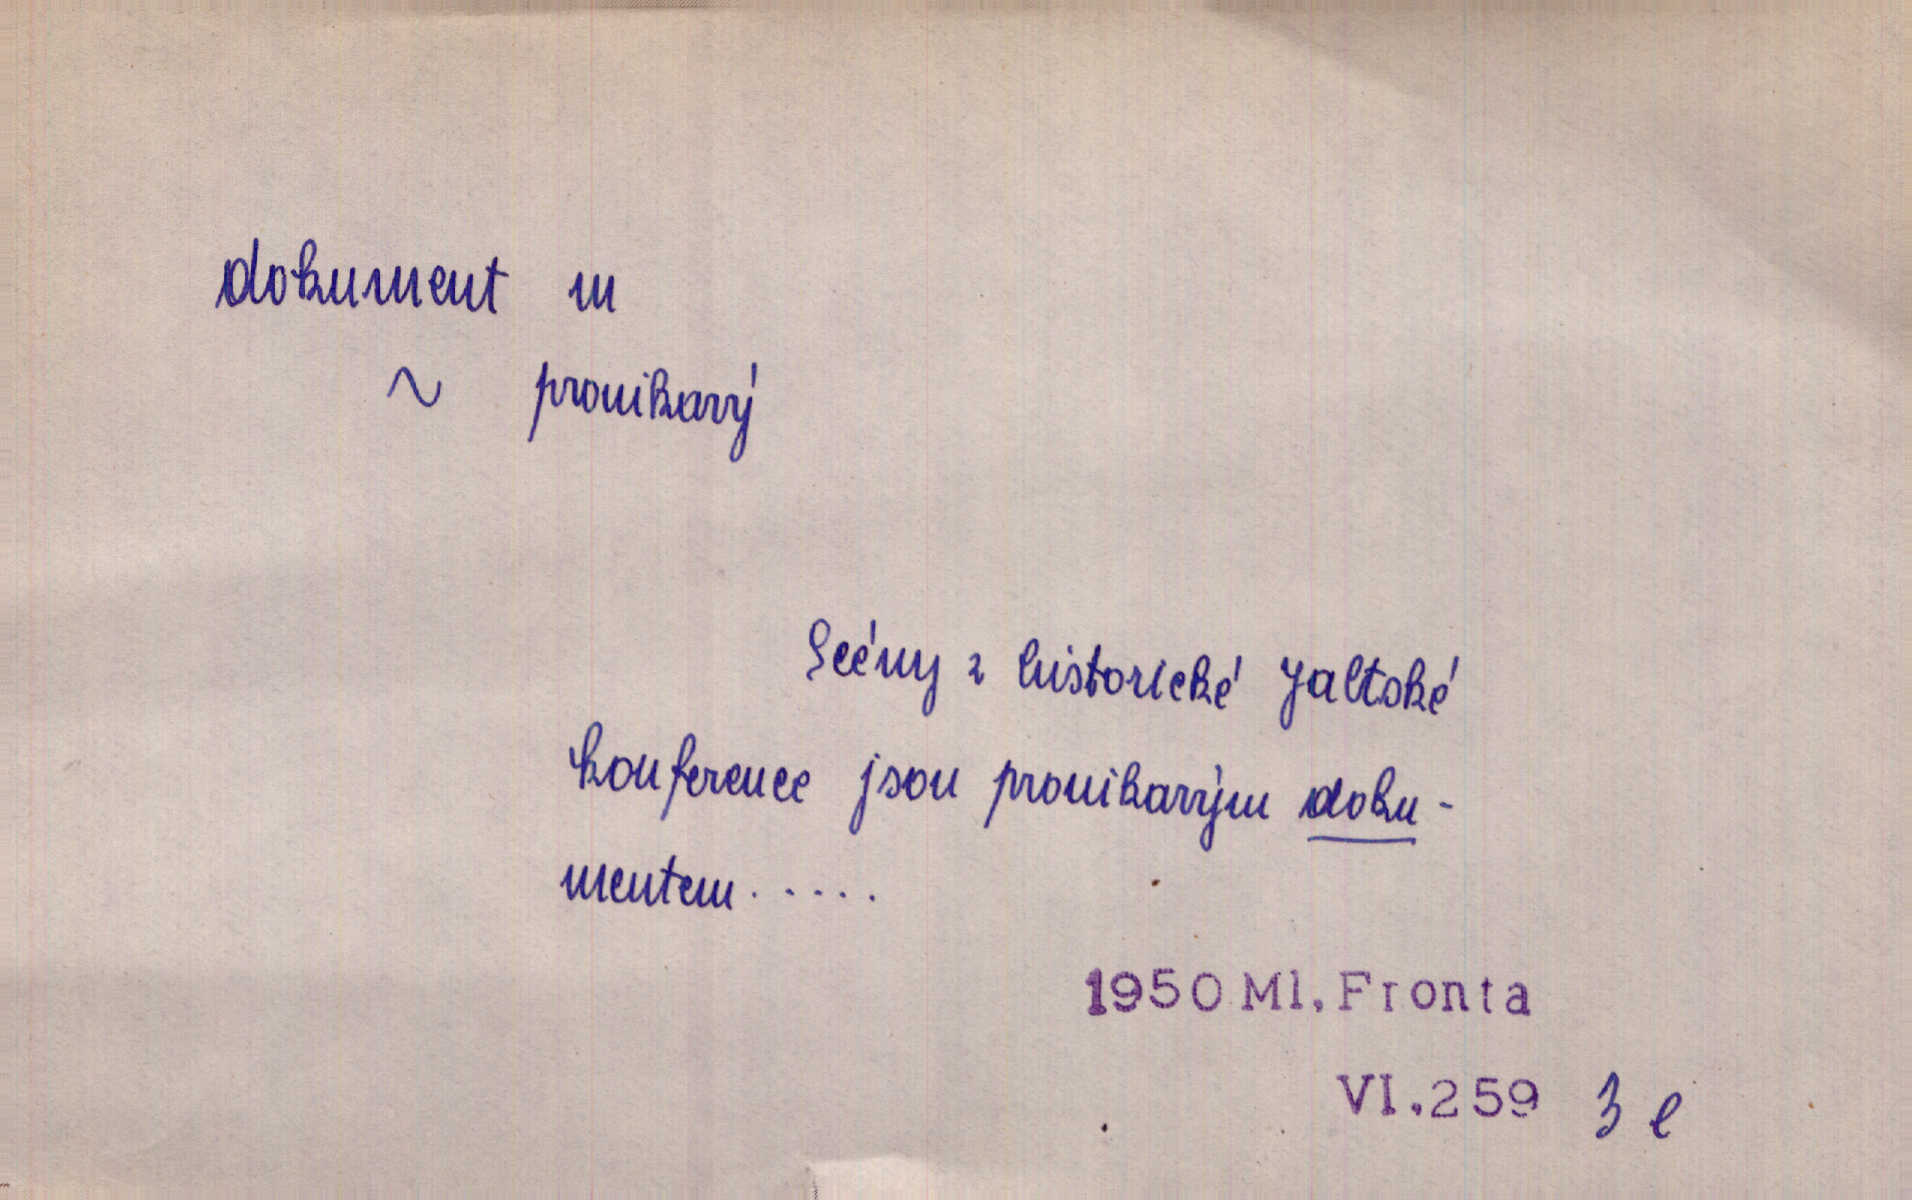 dokument m
~ pronikavý
Scény z historické Jaltské
konference jsou pronikavým doku-
mentem.....
1950 Ml. Fronta
VI.259 3 e